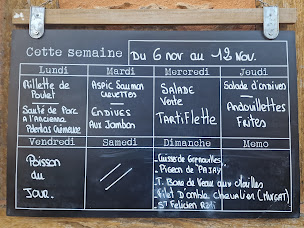 Cette semaine
Du 6 nov au 12 Nov.
Lundi
Mardi
Mercredi
Jeudi
Rillette de
Poulet
Sauté de Porc
A l'Ancienne
Polentas Crémeuse
Aspic Saumon
Crevettes
Endives
Aux Jambon
Salade
Verte
Tartiflette
Salade d'endives
Andouillettes
Frites
Vendredi
Samedi
Dimanche
Memo
Poisson
du
Jour.
Cuisses de Grenouilles
Pigeon de
T. Bone de Veau aux
Filet d'omble chevalier
St Felicien Rôti